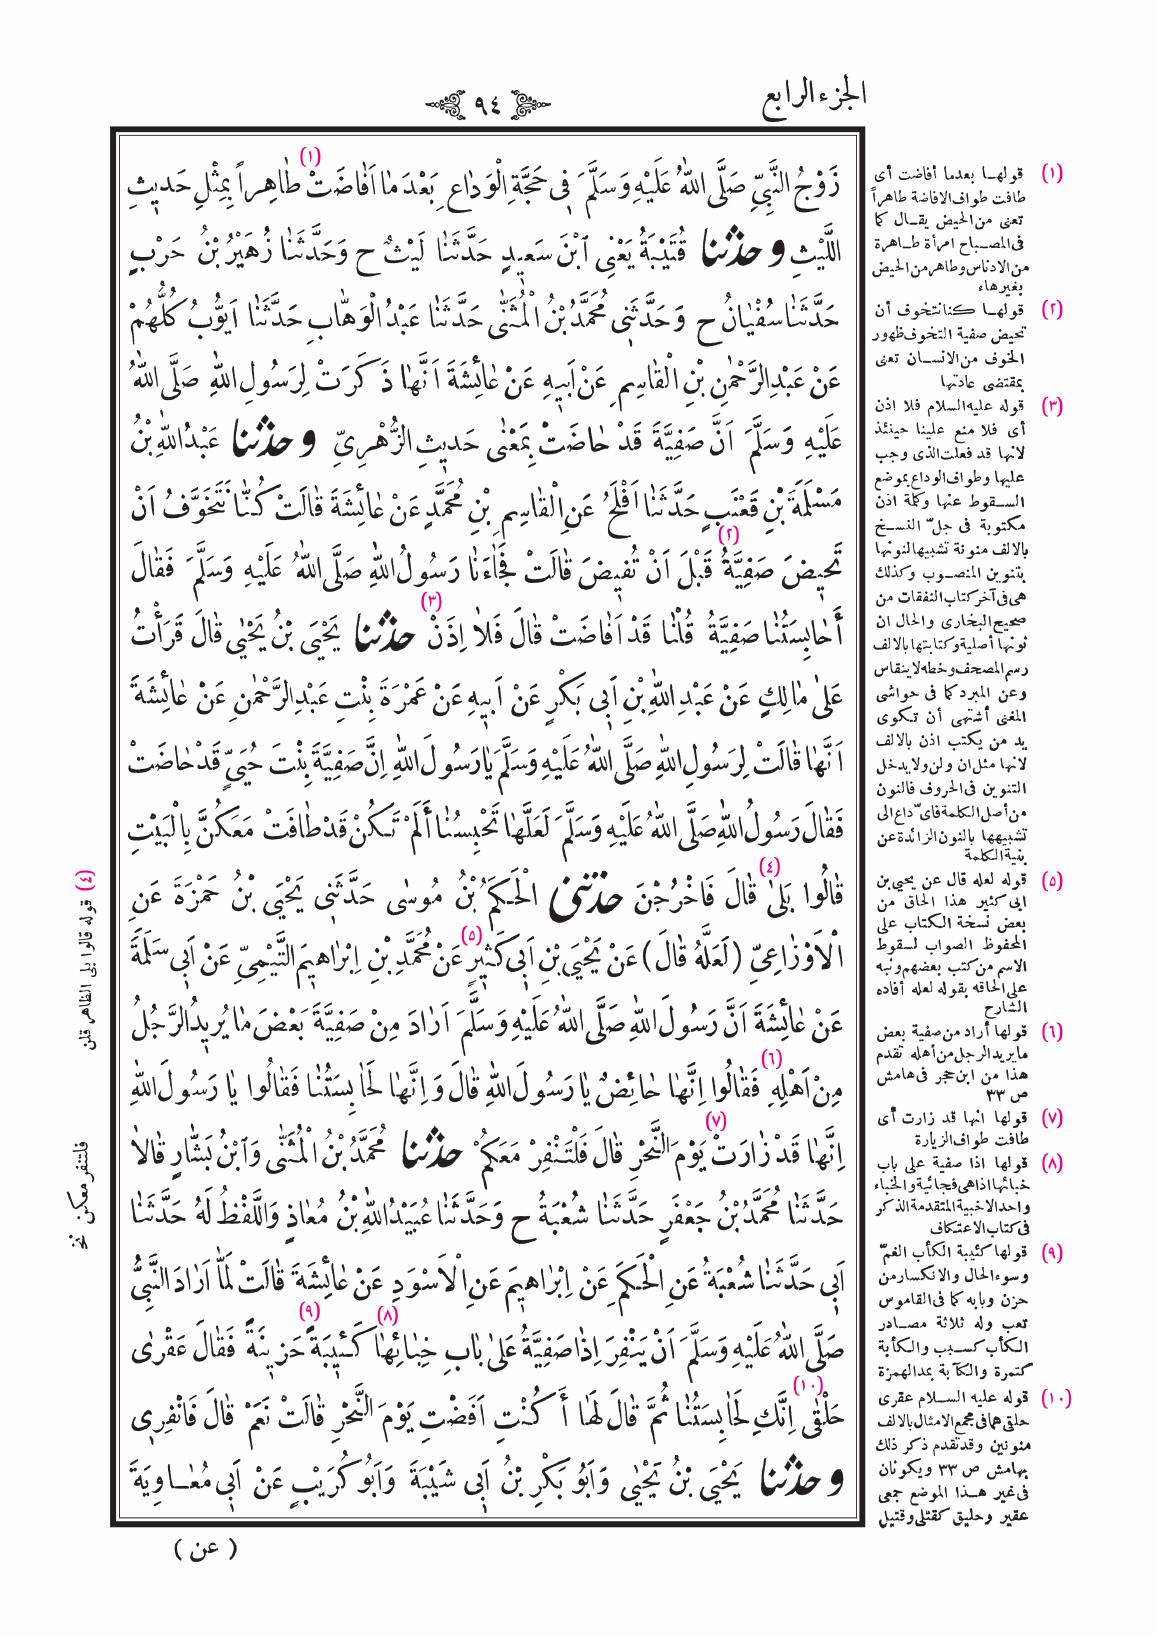 الجزء الرابع
٩٤
زَوْجُ النَّبِيِّ صَلَّى اللهُ عَلَيْهِ وَسَلَّمَ فِي حَجَّةِ الْوَدَاعِ بَعْدَ مَا اَفَاضَتْ (١) طَاهِراً بِمِثْلِ حَدِيثِ
اللَّيْثِ وحدثنا قُتَيْبَةُ يَعْنِى ابْنَ سَعِيدٍ حَدَّثَنَا لَيْثٌ ح وَحَدَّثَنَا زُهَيْرُ بْنُ حَرْبٍ
حَدَّثَنَا سُفْيَانُ ح وَحَدَّثَنِى مُحَمَّدُ بْنُ الْمُثَنَّى حَدَّثَنَا عَبْدُ الْوَهَّابِ حَدَّثَنَا اَيُّوبُ كُلُّهُمْ
عَنْ عَبْدِ الرَّحْمٰنِ بْنِ الْقَاسِمِ عَنْ اَبِيهِ عَنْ عَائِشَةَ اَنَّهَا ذَكَرَتْ لِرَسُولِ اللهِ صَلَّى اللهُ
عَلَيْهِ وَسَلَّمَ اَنَّ صَفِيَّةَ قَدْ حَاضَتْ بِمَعْنٰى حَدِيثِ الزُّهْرِىِّ وحدثنا عَبْدُ اللهِ بْنُ
مَسْلَمَةَ بْنِ قَعْنَبٍ حَدَّثَنَا اَفْلَحُ عَنِ الْقَاسِمِ بْنِ مُحَمَّدٍ عَنْ عَائِشَةَ قَالَتْ كُنَّا نَتَخَوَّفُ اَنْ
تَحِيضَ صَفِيَّةُ (٢) قَبْلَ اَنْ تُفِيضَ قَالَتْ فَجَاءَنَا رَسُولُ اللهِ صَلَّى اللهُ عَلَيْهِ وَسَلَّمَ فَقَالَ
أَحَابِسَتُنَا صَفِيَّةُ قُلْنَا قَدْ اَفَاضَتْ قَالَ فَلَا اِذَنْ (٣) حدثنا يَحْيَى بْنُ يَحْيٰى قَالَ قَرَأْتُ
عَلٰى مَالِكٍ عَنْ عَبْدِ اللهِ بْنِ اَبِى بَكْرٍ عَنْ اَبِيهِ عَنْ عَمْرَةَ بِنْتِ عَبْدِ الرَّحْمٰنِ عَنْ عَائِشَةَ
اَنَّهَا قَالَتْ لِرَسُولِ اللهِ صَلَّى اللهُ عَلَيْهِ وَسَلَّمَ يَا رَسُولَ اللهِ اِنَّ صَفِيَّةَ بِنْتَ حُيَىٍّ قَدْ حَاضَتْ
فَقَالَ رَسُولُ اللهِ صَلَّى اللهُ عَلَيْهِ وَسَلَّمَ لَعَلَّهَا تَحْبِسُنَا أَلَمْ تَكُنْ قَدْ طَافَتْ مَعَكُنَّ بِالْبَيْتِ
قَالُوا بَلٰى (٤) قَالَ فَاخْرُجْنَ حدثنى الْحَكَمُ بْنُ مُوسٰى حَدَّثَنِى يَحْيَى بْنُ حَمْزَةَ عَنِ
الْاَوْزَاعِىِّ (لَعَلَّهُ قَالَ) عَنْ يَحْيَى بْنِ اَبِى كَثِيرٍ (٥) عَنْ مُحَمَّدِ بْنِ اِبْرَاهِيمَ التَّيْمِىِّ عَنْ اَبِى سَلَمَةَ
عَنْ عَائِشَةَ اَنَّ رَسُولَ اللهِ صَلَّى اللهُ عَلَيْهِ وَسَلَّمَ اَرَادَ مِنْ صَفِيَّةَ بَعْضَ مَا يُرِيدُ الرَّجُلُ
مِنْ اَهْلِهِ (٦) فَقَالُوا اِنَّهَا حَائِضٌ يَا رَسُولَ اللهِ قَالَ وَاِنَّهَا لَحَابِسَتُنَا فَقَالُوا يَا رَسُولَ اللهِ
اِنَّهَا قَدْ زَارَتْ (٧) يَوْمَ النَّحْرِ قَالَ فَلْتَنْفِرْ مَعَكُمْ حدثنا مُحَمَّدُ بْنُ الْمُثَنَّى وَابْنُ بَشَّارٍ قَالَا
حَدَّثَنَا مُحَمَّدُ بْنُ جَعْفَرٍ حَدَّثَنَا شُعْبَةُ ح وَحَدَّثَنَا عُبَيْدُ اللهِ بْنُ مُعَاذٍ وَاللَّفْظُ لَهُ حَدَّثَنَا
اَبِى حَدَّثَنَا شُعْبَةُ عَنِ الْحَكَمِ عَنْ اِبْرَاهِيمَ عَنِ الْاَسْوَدِ عَنْ عَائِشَةَ قَالَتْ لَمَّا اَرَادَ النَّبِىُّ
صَلَّى اللهُ عَلَيْهِ وَسَلَّمَ اَنْ يَنْفِرَ اِذَا صَفِيَّةُ عَلٰى بَابِ خِبَائِهَا (٨) كَئِيبَةً (٩) حَزِينَةً فَقَالَ عَقْرٰى
حَلْقٰى (١٠) اِنَّكِ لَحَابِسَتُنَا ثُمَّ قَالَ لَهَا أَكُنْتِ اَفَضْتِ يَوْمَ النَّحْرِ قَالَتْ نَعَمْ قَالَ فَانْفِرِى
وحدثنا يَحْيَى بْنُ يَحْيٰى وَاَبُو بَكْرِ بْنُ اَبِى شَيْبَةَ وَاَبُو كُرَيْبٍ عَنْ اَبِى مُعَاوِيَةَ
( عن )
(١) قولها بعدما أفاضت أى
طافت طواف الافاضة طاهراً
تعنى من الحيض يقال كما
فى المصباح امرأة طاهرة
من الادناس وطاهر من الحيض
بغير هاء
(٢) قولها كنا نتخوف أن
تحيض صفية التخوف ظهور
الخوف من الانسان تعنى
بمقتضى عادتها
(٣) قوله عليه السلام فلا اذن
أى فلا منع علينا حينئذ
لانها قد فعلت الذى وجب
عليها وطواف الوداع بموضع
السقوط عنها وكلمة اذن
مكتوبة فى جلّ النسخ
بالالف منونة تشبيها لنونها
بتنوين المنصوب وكذلك
هى فى آخر كتاب النفقات من
صحيح البخارى والحال ان
نونها أصلية وكتابتها بالالف
رسم المصحف وخطه لا ينقاس
وعن المبرد كما فى حواشى
المغنى أشتهى أن تكوى
يد من يكتب اذن بالالف
لانها مثل ان ولن ولا يدخل
التنوين فى الحروف فالنون
من أصل الكلمة فاىّ داع الى
تشبيهها بالنون الزائدة عن
بنية الكلمة
(٥) قوله لعله قال عن يحيى بن
ابى كثير هذا الحاق من
بعض نسخة الكتاب على
المحفوظ الصواب لسقوط
الاسم من كتب بعضهم ونبه
على الحاقه بقوله لعله أفاده
الشارح
(٦) قولها أراد من صفية بعض
ما يريد الرجل من أهله تقدم
هذا من ابن حجر فى هامش
ص ٣٣
(٧) قولها انها قد زارت أى
طافت طواف الزيارة
(٨) قولها اذا صفية على باب
خبائها اذا هى فجائية والخباء
واحد الاخبية المتقدمة الذكر
فى كتاب الاعتكاف
(٩) قولها كئيبة الكأب الغمّ
وسوء الحال والانكسار من
حزن وبابه كما فى القاموس
تعب وله ثلاثة مصادر
الكأب كسبب والكأبة
كتمرة والكآبة بمد الهمزة
(١٠) قوله عليه السلام عقرى
حلقى هما فى مجمع الامثال بالالف
منونين وقد تقدم ذكر ذلك
بهامش ص ٣٣ ويكونان
فى غير هذا الموضع جمعى
عقير وحليق كقتلى وقتيل
(٤) قوله قالوا بلى الظاهر قلن
فلتنفر معكن نخ